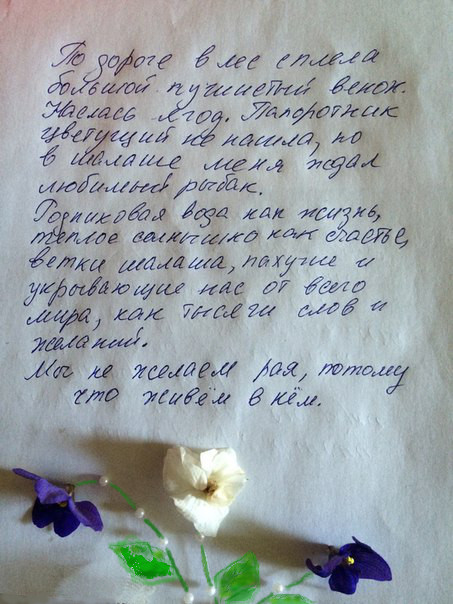 По дороге в лес сплела
большой пушистый венок.
Наелась ягод. Папоротник
цветущий не нашла, но
в шалаше меня ждал
любимый рыбак.
Родниковая вода как жизнь,
теплое солнышко как счастье,
ветки шалаша, пахучие и
укрывающие нас от всего
мира, как тысячи слов и
желаний.
Мы не желаем рая, потому
что живём в нём.